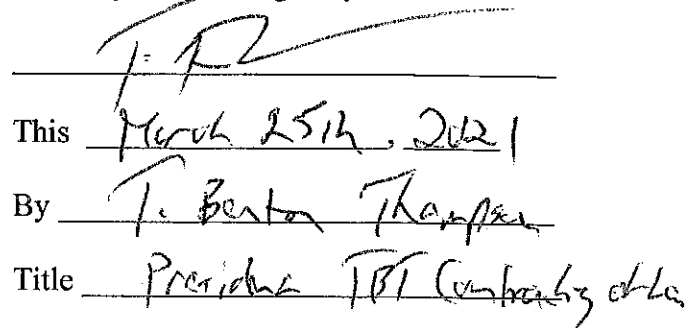 This March 25th, 2021
By T. Benton Thompson
Title President TBT Contracting of La